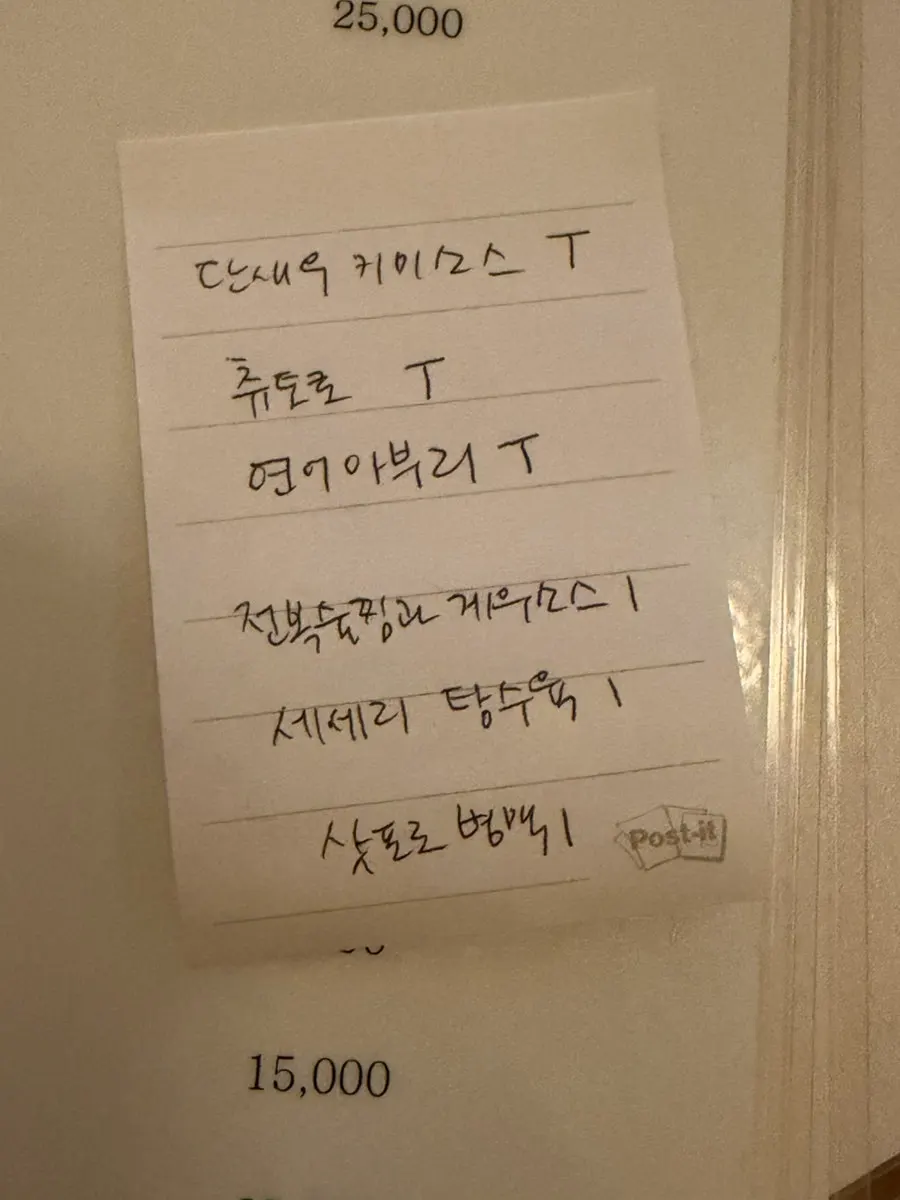 25,000
단새우 카이소스 T
츄토로 T
연어아부리 T
전복술찜과 게우소스 1
세세리 탕수육 1
삿포로 병맥 1
Post-it
15,000